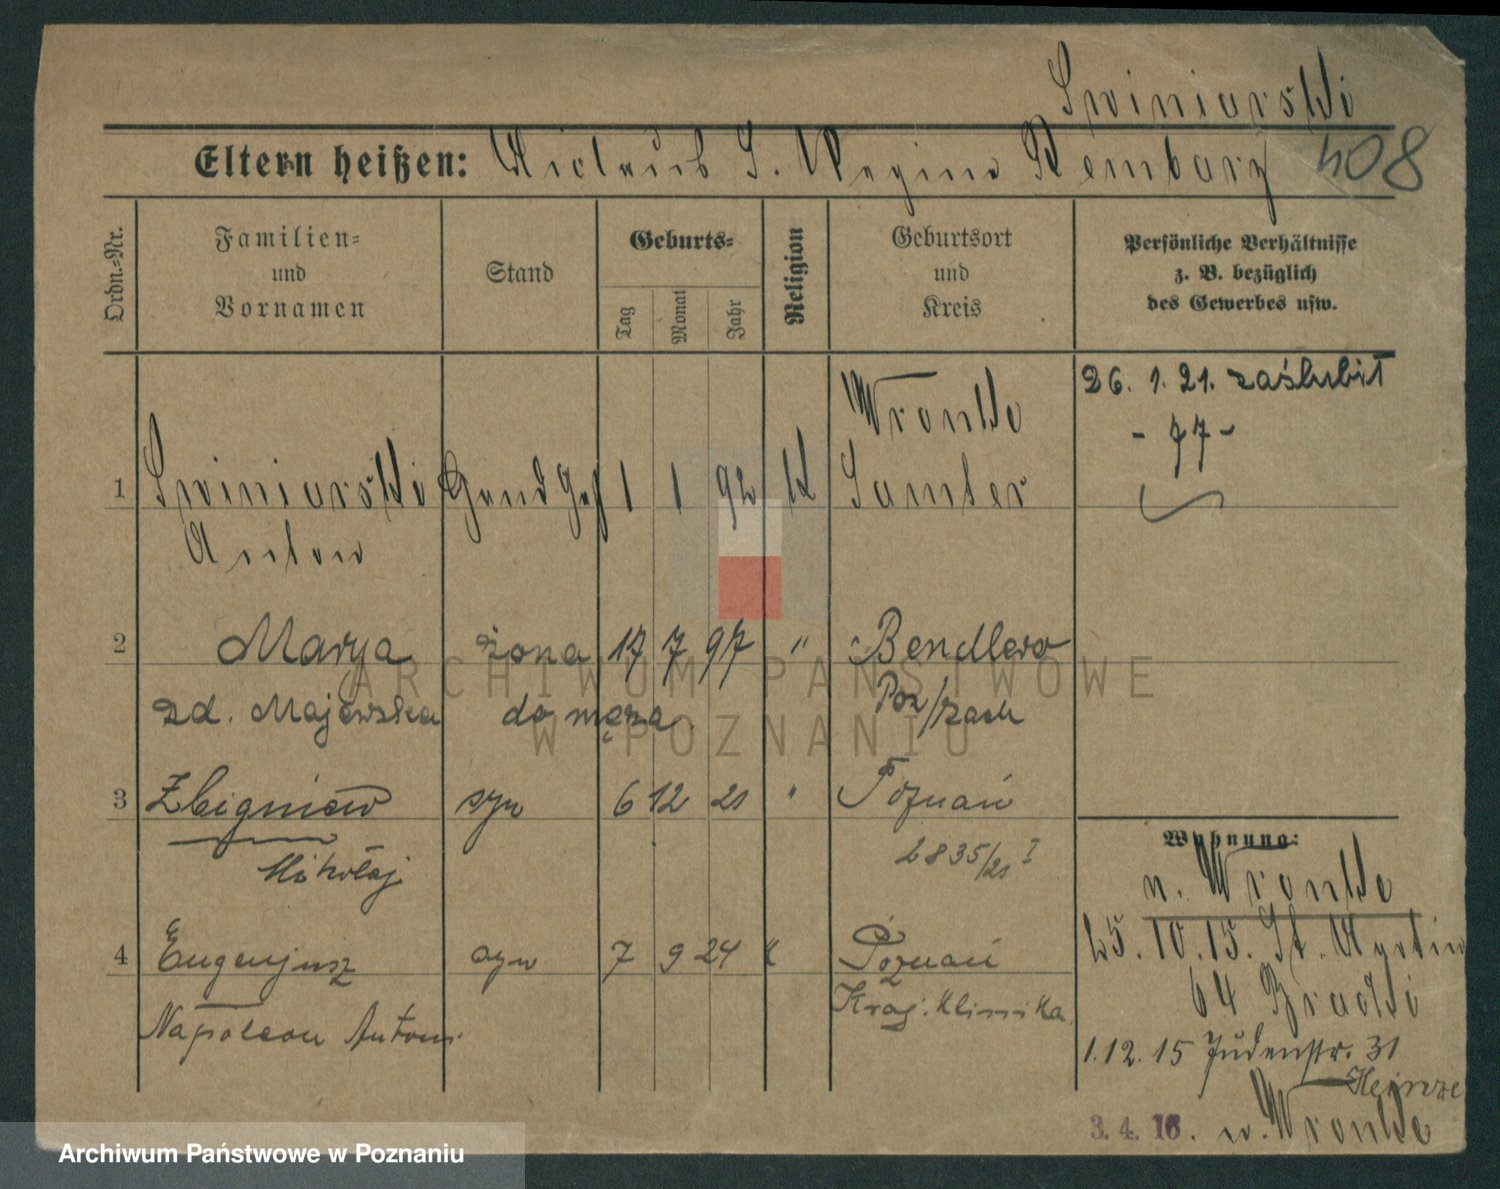 Swiniarski
Eltern heißen: S. Regina Rembarz 408
Ordn.-Nr.
Familien-
und
Vornamen
Stand
Geburts-
Tag
Monat
Jahr
Religion
Geburtsort
und
Kreis
Persönliche Verhältnisse
z. B. bezüglich
des Gewerbes usw.
26. 1. 21. zaślubił
Wronke
- 77 -
1 Swiniarski 1 1 92 k Samter
Anton
2 Marya żona 17 7 97 " Bendlewo
zd. Majewska do męża Poz/zach
3 Zbigniew syn 6 12 21 " Poznań
Mikołaj 2835/21 I
4 Eugenjusz syn 7 9 24 " Poznań
Napoleon Antoni Kraj. Klinika
Wohnung:
n. Wronke
25. 10. 15. St. Martin
64
1. 12. 15 Judenstr. 31
Heinze
3. 4. 16. n. Wronke
ARCHIWUM PAŃSTWOWE
W POZNANIU
Archiwum Państwowe w Poznaniu